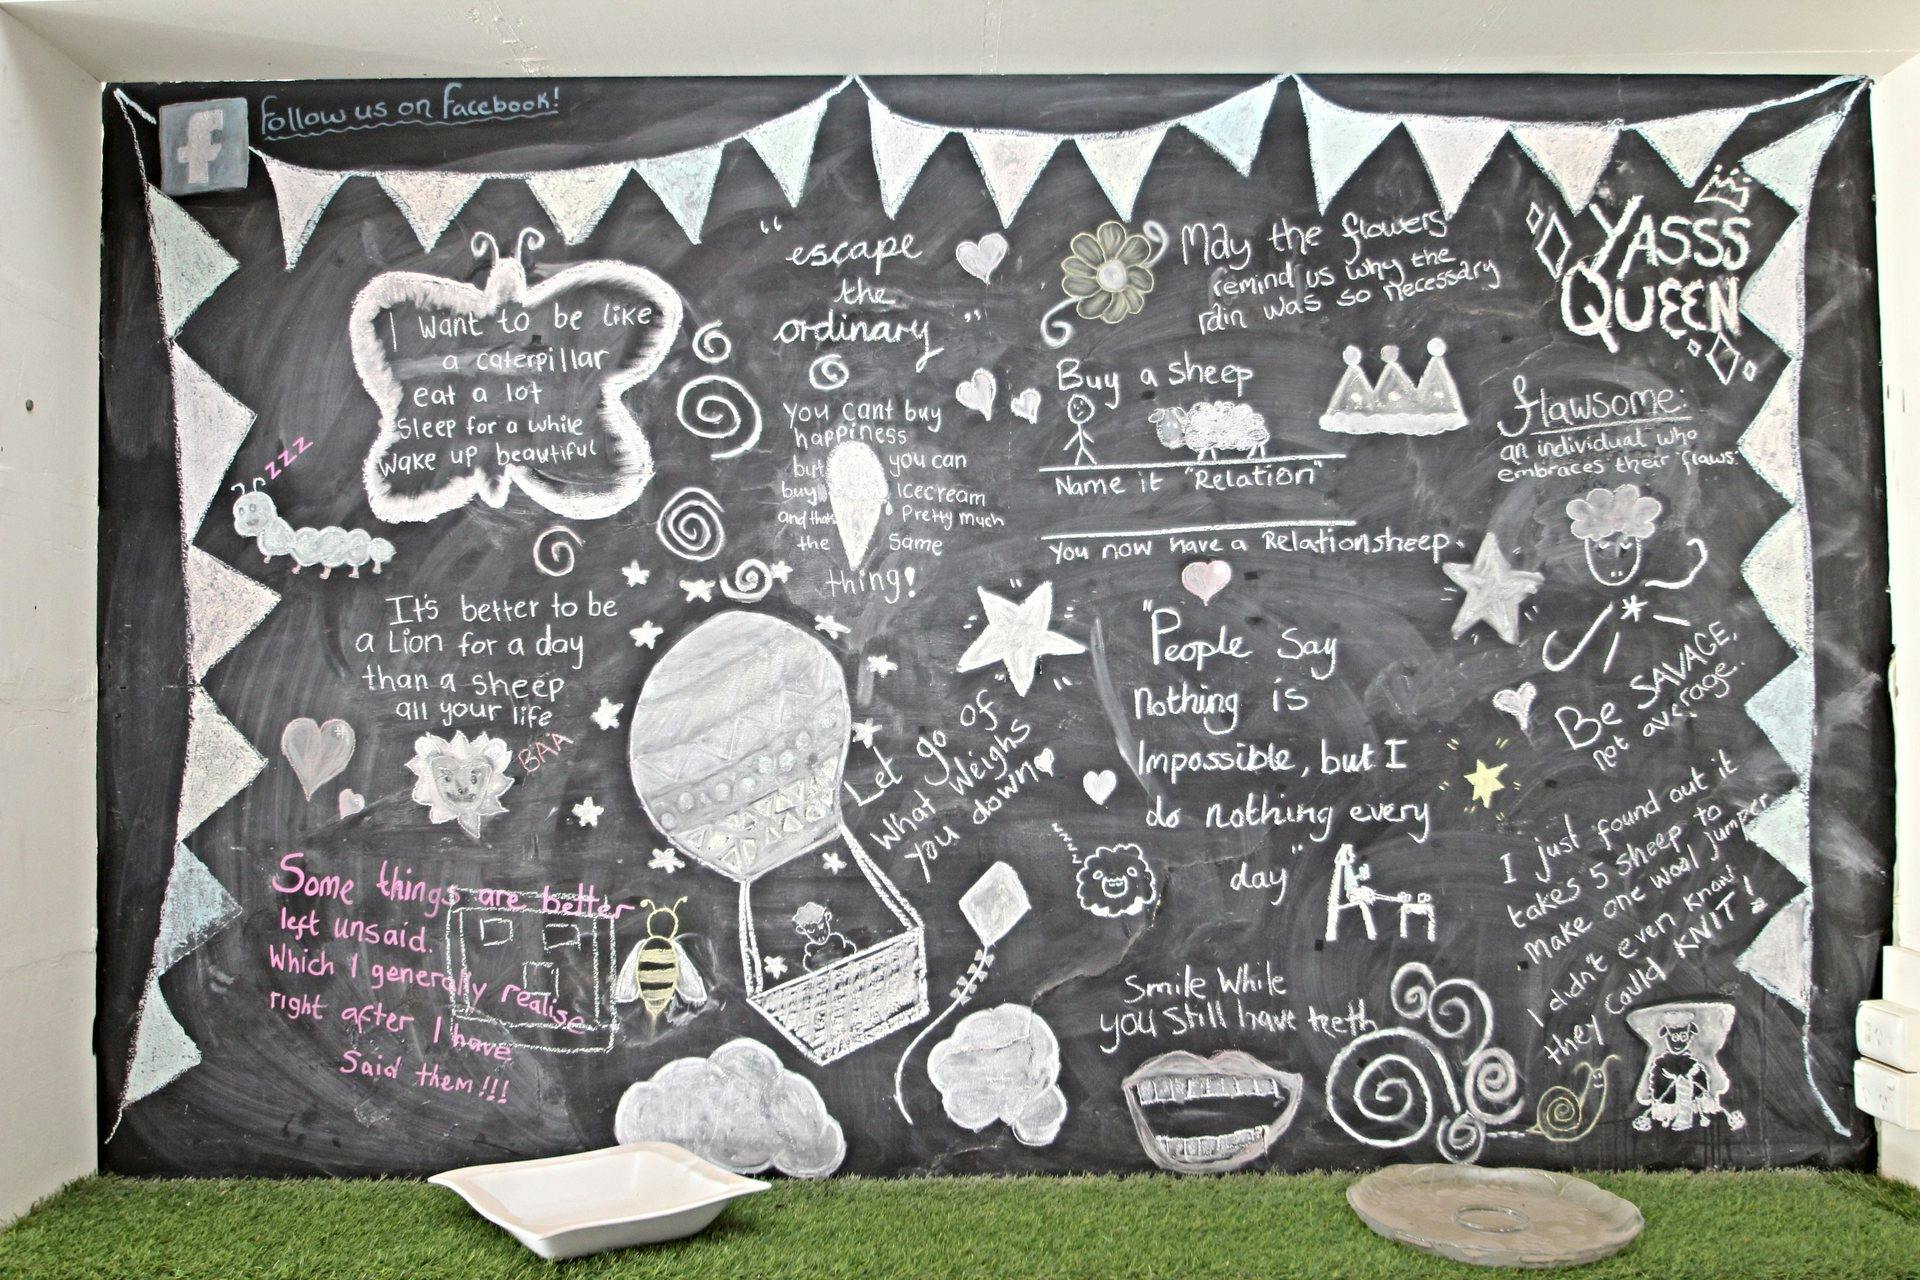 f
Follow us on Facebook!
I want to be like
a caterpillar
eat a lot
Sleep for a while
wake up beautiful
zzz
"escape
the
ordinary"
May the flowers
remind us why the
rain was so necessary
YASSS
QUEEN
You cant buy
happiness
but you can
buy icecream
and thats Pretty much
the same
thing!
Buy a sheep
Name it "Relation"
You now have a Relationsheep.
flawsome:
an individual who
embraces their flaws.
It's better to be
a Lion for a day
than a sheep
all your life
BAA
Let go of
What Weighs
you down
"People Say
nothing is
Impossible, but I
do nothing every
day"
Be SAVAGE,
not average.
I just found out it
takes 5 sheep to
make one wool jumper
I didn't even know
they Could KNIT!
Some things are better
left unsaid.
Which I generally realise
right after I have
Said them!!!
Smile While
you Still have teeth